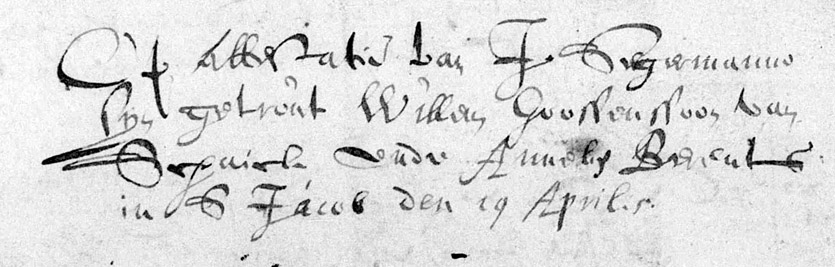 Et Attestatie van J Segermanno
syn getrout Willem Goossenssoon van
Schaick ende Anneke Berents
in S Jacob den 19 Aprilis.